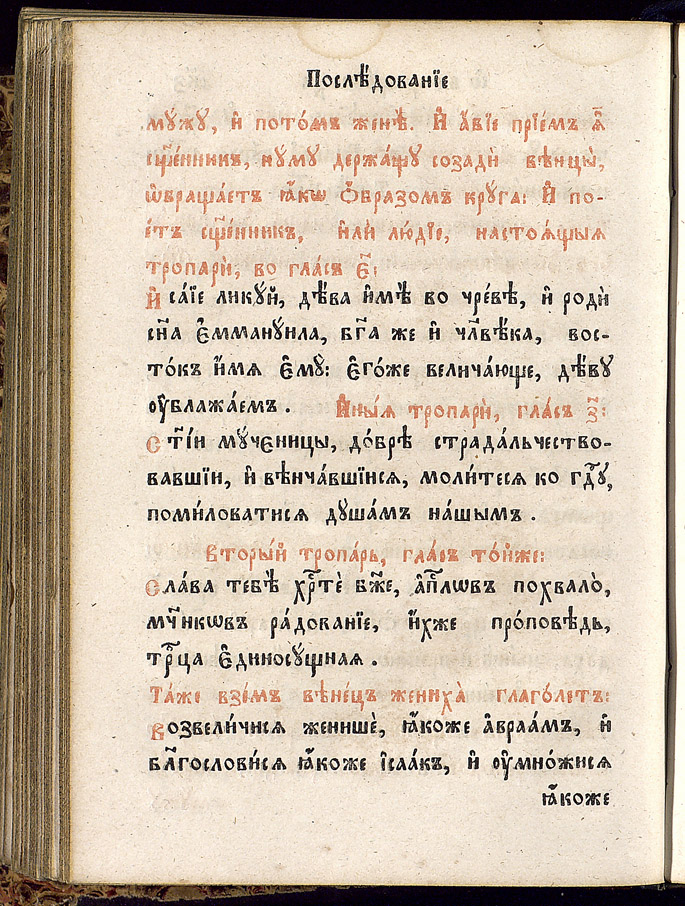 Послѣ́дованїе
мꙋ́жꙋ, и҆ пото́мъ женѣ̀. И҆ а҆́бїе прїе́мъ ѧ҆̀
сщ҃е́нникъ, кꙋ́мꙋ держа́щꙋ созадѝ вѣнцы̀,
ѡ҆браща́етъ ꙗ҆́кѡ ѻ҆́бразомъ крꙋ́га: И҆ по-
е́тъ сщ҃е́нникъ, и҆лѝ лю́дїе, настоѧ́щыѧ
тропарѝ, во гла́съ є҃:
И҆са́їе ликꙋ́й, дѣ́ва и҆мѣ̀ во чре́вѣ, и҆ родѝ
сн҃а є҆ммани́ла, бг҃а же и҆ чл҃вѣ́ка, вос-
то́къ и҆́мѧ є҆мꙋ̀: є҆го́же велича́юще, дѣ́вꙋ
ᲂу҆блажа́емъ. И҆ны́ѧ тропарѝ, гла́съ з҃:
Ст҃і́и мꙋ́ченицы, до́брѣ страда́льчество-
вавшїи, и҆ вѣнча́вшїисѧ, моли́тесѧ ко гдⷭ҇ꙋ,
поми́ловатисѧ дꙋша́мъ на́шымъ.
Вторы́й тропа́рь, гла́съ то́йже:
Сла́ва тебѣ̀ хрⷭ҇тѐ бж҃е, а҆пⷭ҇лѡвъ похвало̀,
мч҃нкѡвъ ра́дованїе, и҆́хже про́повѣдь,
трⷪ҇ца є҆диносꙋ́щнаѧ.
Та́же взе́мъ вѣне́цъ жениха̀ глаго́летъ:
Возвели́чисѧ женишѐ, ꙗ҆́коже а҆враа́мъ, и҆
бл҃гослови́сѧ ꙗ҆́коже і҆саа́къ, и҆ ᲂу҆мно́жисѧ
ꙗ҆́коже